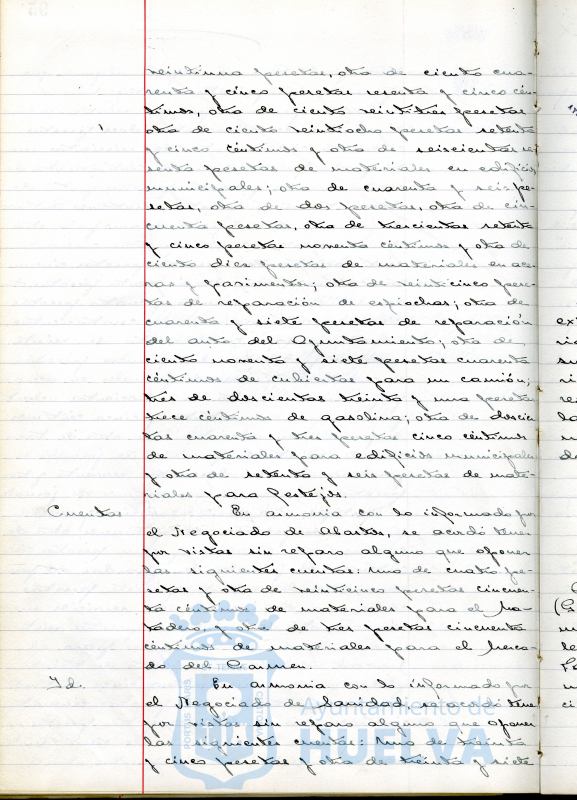 veintiuna pesetas, otra de ciento cua-
renta y cinco pesetas sesenta y cinco cén-
timos, otra de ciento veintitres pesetas
otra de ciento veintiocho pesetas setenta
y cinco céntimos y otra de seiscientas se-
senta pesetas de materiales en edificios
municipales; otra de cuarenta y seis pe-
setas, otra de dos pesetas, otra de cin-
cuenta pesetas, otra de trescientas setenta
y cinco pesetas noventa céntimos y otra de
ciento diez pesetas de materiales en ace-
ras y pavimentos; otra de veinticinco pese-
tas de reparación de espiochas; otra de
cuarenta y siete pesetas de reparación
del auto del Ayuntamiento; otra de
ciento noventa y siete pesetas cuarenta
céntimos de cubiertas para un camión;
tres de doscientas treinta y una pesetas
trece céntimos de gasolina; otra de doscien-
tas cuarenta y tres pesetas cinco céntimos
de materiales para edificios municipales
y otra de setenta y seis pesetas de mate-
riales para festejos.
Cuentas En armonia con lo informado por
el Negociado de Abastos, se acordó tener
por vistas sin reparo alguno que oponer
las siguientes cuentas: Una de cuatro pe-
setas y otra de veinticinco pesetas cincuen-
ta céntimos de materiales para el Ma-
tadero y otra de tres pesetas cincuenta
céntimos de materiales para el Merca-
do del Carmen.
Id. En armonia con lo informado por
el Negociado de Sanidad, se acordó tener
por vistas sin reparo alguno que oponer
las siguientes cuentas: Una de treinta
y cinco pesetas y otra de treinta y siete
Ayuntamiento de
HUELVA
PORTUS MARIS